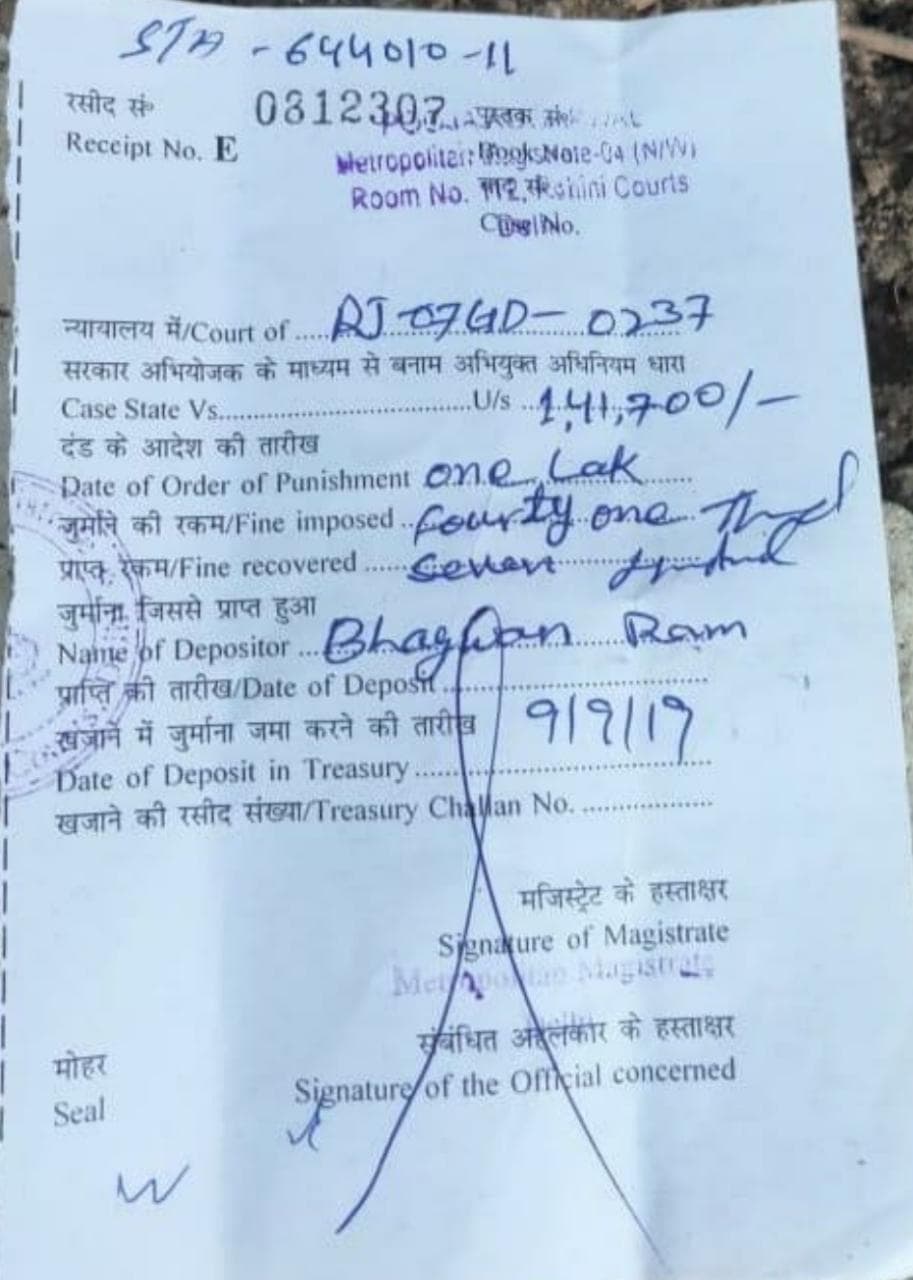 STA - 644010-11
रसीद सं॰ 0312307 पुस्तक सं॰
Receipt No. E
Metropolitan
Room No. Rohini Courts
न्यायालय में/Court of ..... RJ 07GD - 0237
सरकार अभियोजक के माध्यम से बनाम अभियुक्त अधिनियम धारा
Case State Vs.................................U/s .. 1,41,700/-
दंड के आदेश की तारीख
Date of Order of Punishment one Lak
जुर्माने की रकम/Fine imposed .. Fourty one
प्राप्त रकम/Fine recovered ...... Seven
जुर्माना जिससे प्राप्त हुआ
Name of Depositor ... Bhagwan Ram
प्राप्ति की तारीख/Date of Deposit
खजाने में जुर्माना जमा करने की तारीख 9/9/19
Date of Deposit in Treasury
खजाने की रसीद संख्या/Treasury Challan No.
मजिस्ट्रेट के हस्ताक्षर
Signature of Magistrate
Metropolitan Magistrate
संबंधित अहलकार के हस्ताक्षर
मोहर
Signature of the Official concerned
Seal